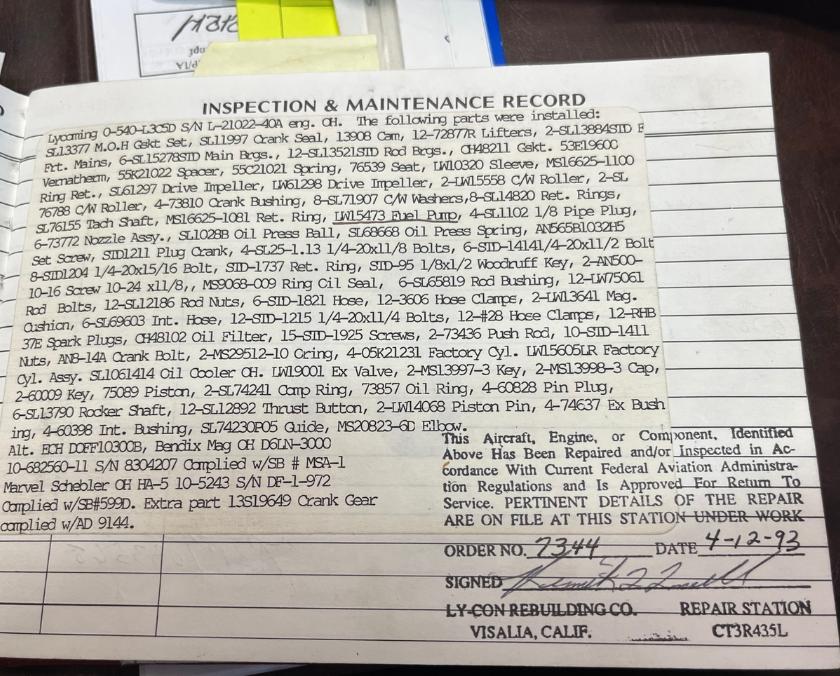 INSPECTION & MAINTENANCE RECORD
Lycoming O-540-L3C5D S/N L-21022-40A eng. OH. The following parts were installed:
SL13377 M.O.H Gskt Set, SL11997 Crank Seal, 13908 Cam, 12-72877R Lifters, 2-SL13884STD F
Frt. Mains, 6-SL15278STD Main Brgs., 12-SL13521STD Rod Brgs., CH48211 Gskt. 53E19600
Vernatherm, 55K21022 Spacer, 55C21021 Spring, 76539 Seat, LW10320 Sleeve, MS16625-1100
Ring Ret., SL61297 Drive Impeller, LW61298 Drive Impeller, 2-LW15558 C/W Roller, 2-SL
76788 C/W Roller, 4-73810 Crank Bushing, 8-SL71907 C/W Washers,8-SL14820 Ret. Rings,
SL76155 Tach Shaft, MS16625-1081 Ret. Ring, LW15473 Fuel Pump, 4-SL1102 1/8 Pipe Plug,
6-73772 Nozzle Assy., SL1028B Oil Press Ball, SL68668 Oil Press Spring, AN565B1032H5
Set Screw, STD1211 Plug Crank, 4-SL25-1.13 1/4-20x11/8 Bolts, 6-STD-14141/4-20x11/2 Bolt
8-STD1204 1/4-20x15/16 Bolt, STD-1737 Ret. Ring, STD-95 1/8x1/2 Woodruff Key, 2-AN500-
10-16 Screw 10-24 x11/8,, MS9068-009 Ring Oil Seal, 6-SL65819 Rod Bushing, 12-LW75061
Rod Bolts, 12-SL12186 Rod Nuts, 6-STD-1821 Hose, 12-3606 Hose Clamps, 2-LW13641 Mag.
Cushion, 6-SL69603 Int. Hose, 12-STD-1215 1/4-20x11/4 Bolts, 12-#28 Hose Clamps, 12-RHB
37E Spark Plugs, CH48102 Oil Filter, 15-STD-1925 Screws, 2-73436 Push Rod, 10-STD-1411
Nuts, AN8-14A Crank Bolt, 2-MS29512-10 Oring, 4-05K21231 Factory Cyl. LW15605LR Factory
Cyl. Assy. SL1061414 Oil Cooler OH. LW19001 Ex Valve, 2-MS13997-3 Key, 2-MS13998-3 Cap,
2-60009 Key, 75089 Piston, 2-SL74241 Comp Ring, 73857 Oil Ring, 4-60828 Pin Plug,
6-SL13790 Rocker Shaft, 12-SL12892 Thrust Button, 2-LW14068 Piston Pin, 4-74637 Ex Bush
ing, 4-60398 Int. Bushing, SL74230P05 Guide, MS20823-6D Elbow.
Alt. ECH DOFF10300B, Bendix Mag OH D6LN-3000
10-682560-11 S/N 8304207 Complied w/SB # MSA-1
Marvel Schebler OH HA-5 10-5243 S/N DF-1-972
Complied w/SB#599D. Extra part 13S19649 Crank Gear
complied w/AD 9144.
This Aircraft, Engine, or Component, Identified
Above Has Been Repaired and/or Inspected in Ac-
cordance With Current Federal Aviation Administra-
tion Regulations and Is Approved For Return To
Service. PERTINENT DETAILS OF THE REPAIR
ARE ON FILE AT THIS STATION UNDER WORK
ORDER NO. 7344 DATE 4-12-93
SIGNED
LY-CON REBUILDING CO. REPAIR STATION
VISALIA, CALIF. CT3R435L